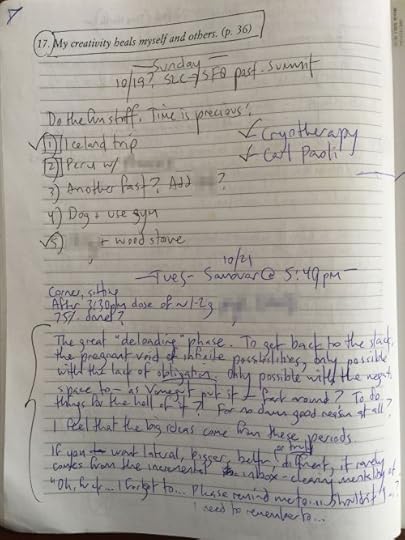 17. My creativity heals myself and others. (p. 36)
Sunday
10/19? SLC → SFO past. Summit
Do the fun stuff. Time is precious!
1) Iceland trip
Cryotherapy
2) Peru w/
Carl Paoli
3) Another fast? Add ?
4) Dog + use gym
5) + wood stove
10/21
Tues - Samovar @ 5:40pm
Corner, sitting
After 3:30pm dose of ~1-2g
75% done?
The great "deloading" phase. To get back to the slack,
the pregnant void of infinite possibilities, only possible
with the lack of obligation. Only possible with the negative
space to - as Vonnegut put it - fart around? To do
things for the hell of it? For no damn good reason at all?
I feel that the big ideas come from these periods.
or truly
If you want lateral, bigger, better, different, it rarely
comes from the incremental inbox-clearing mentality of
"Oh, fuck... I forgot to... Please remind me to... Shouldn't I...?
I need to remember to...